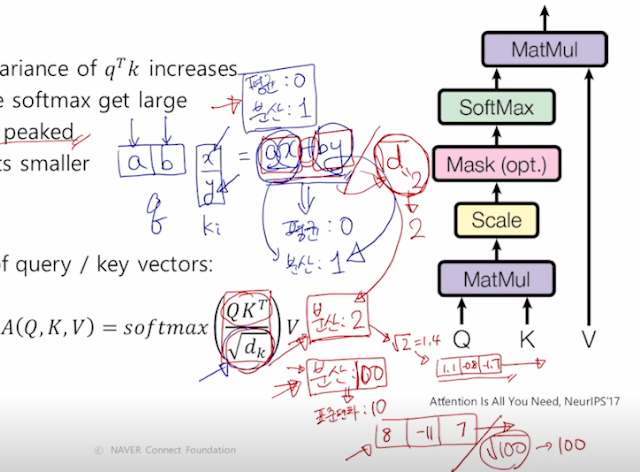 ariance of qᵀk increases
e softmax get large
peaked
ts smaller
평균 : 0
분산 : 1
a b
x
y
= ax + by
q
ki
d
2
2
평균 : 0
분산 : 1
of query / key vectors:
A(Q, K, V) = softmax(QKᵀ/√dₖ)V
분산 : 2
√2 = 1.4
1.1 -0.8 -1.7
분산 : 100
표준편차 : 10
8 -11 7
√100 → 100
MatMul
SoftMax
Mask (opt.)
Scale
MatMul
Q K V
Attention Is All You Need, NeurIPS'17
ⓒ NAVER Connect Foundation